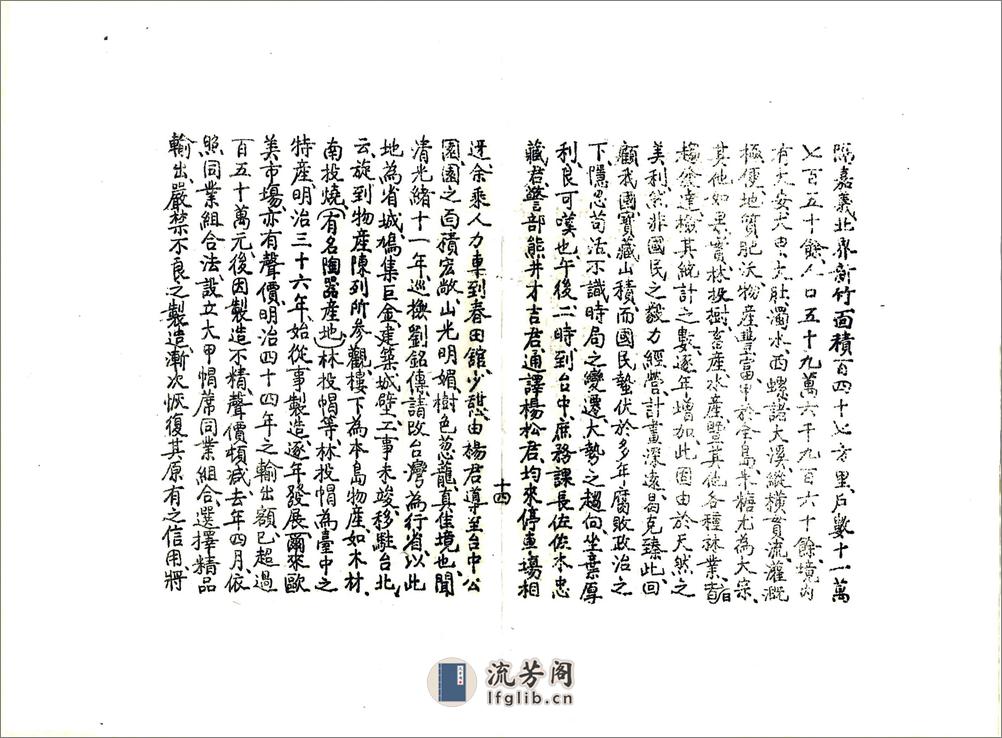 隔嘉義北界新竹面積百四十七方里戶數十一萬
七百五十餘人口五十九萬六千九百六十餘境內
有大安大甲大肚濁水西螺諸大溪縱橫貫流灌溉
極便地質肥沃物產豐富甲於全島米糖尤為大宗
其他如果實林投樹畜產水產暨其他各種林業皆
趨發達檢其統計之數逐年增加此固由於天然之
美利然非國民之毅力經營計畫深遠曷克臻此回
顧我國寶藏山積而國民蟄伏於多年腐敗政治之
下隱忍苟活不識時局之變遷大勢之趨向坐棄厚
利良可嘆也午後二時到台中庶務課長佐佐木忠
藏君警部熊井才吉君通譯楊松君均來停車場相
十四
迓余乘人力車到春田館少憩由楊君導至台中公
園園之面積宏敞山光明媚樹色蔥蘢真佳境也聞
清光緒十一年巡撫劉銘傳請改台灣為行省以此
地為省城鳩集巨金建築城壁工事未竣移駐台北
云旋到物產陳列所參觀樓下為本島物產如木材
南投燒(有名陶器產地)林投帽等林投帽為臺中之
特產明治三十六年始從事製造逐年發展爾來歐
美市場亦有聲價明治四十四年之輸出額已超過
百五十萬元後因製造不精聲價頓減去年四月依
照同業組合法設立大甲帽蓆同業組合選擇精品
輸出嚴禁不良之製造漸次恢復其原有之信用將
流芳阁
lfglib.cn